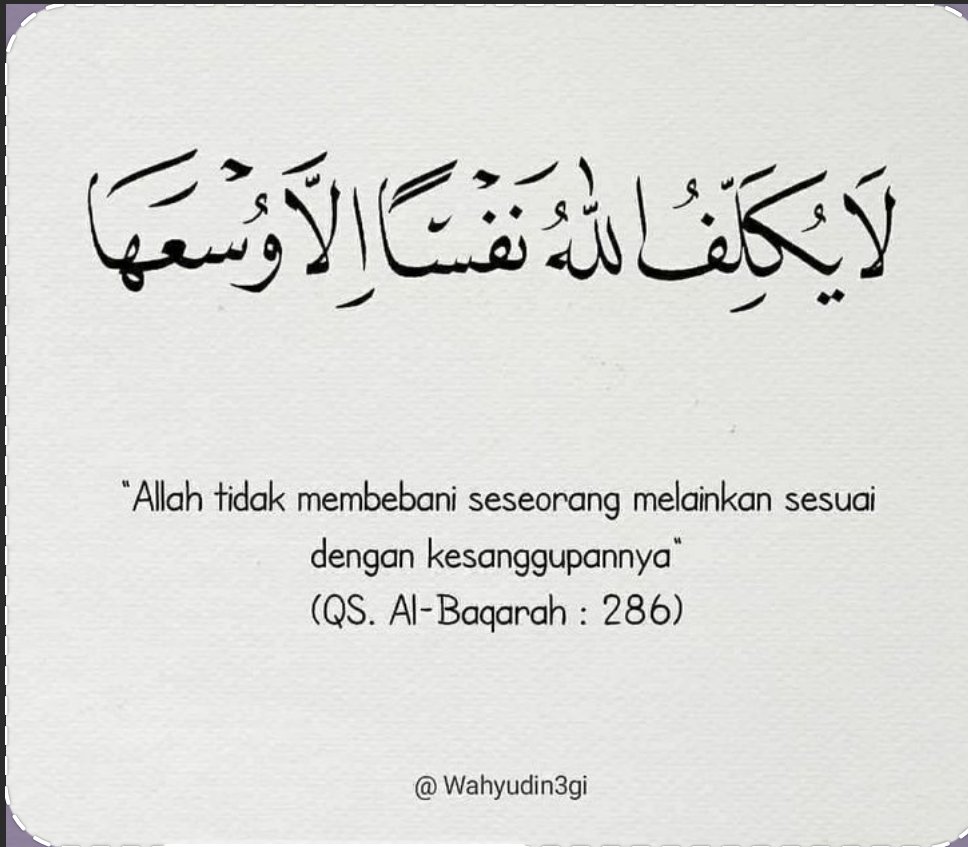 لَا يُكَلِّفُ اللّٰهُ نَفْسًا اِلَّا وُسْعَهَا
"Allah tidak membebani seseorang melainkan sesuai
dengan kesanggupannya"
(QS. Al-Baqarah : 286)
@ Wahyudin3gi